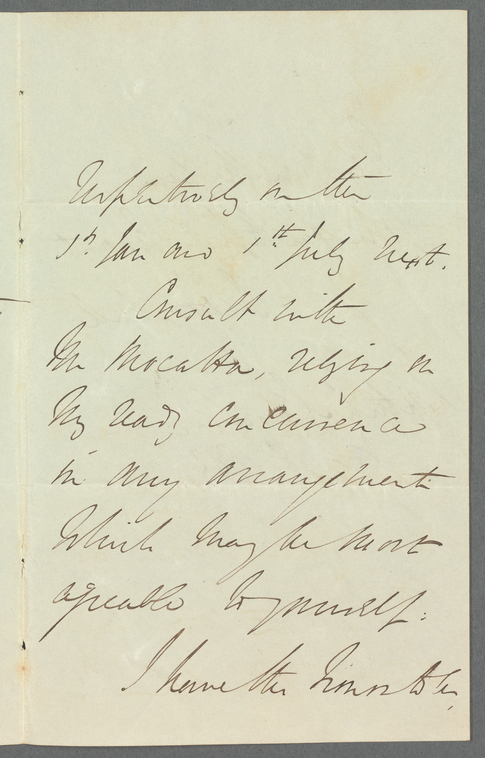 respectively on the
1st Jan and 1st July next.
Consult with
Mr Mocatta, relying on
my ready concurrence
in any arrangement
which may be most
agreeable to yourself.
I have the honor to be,